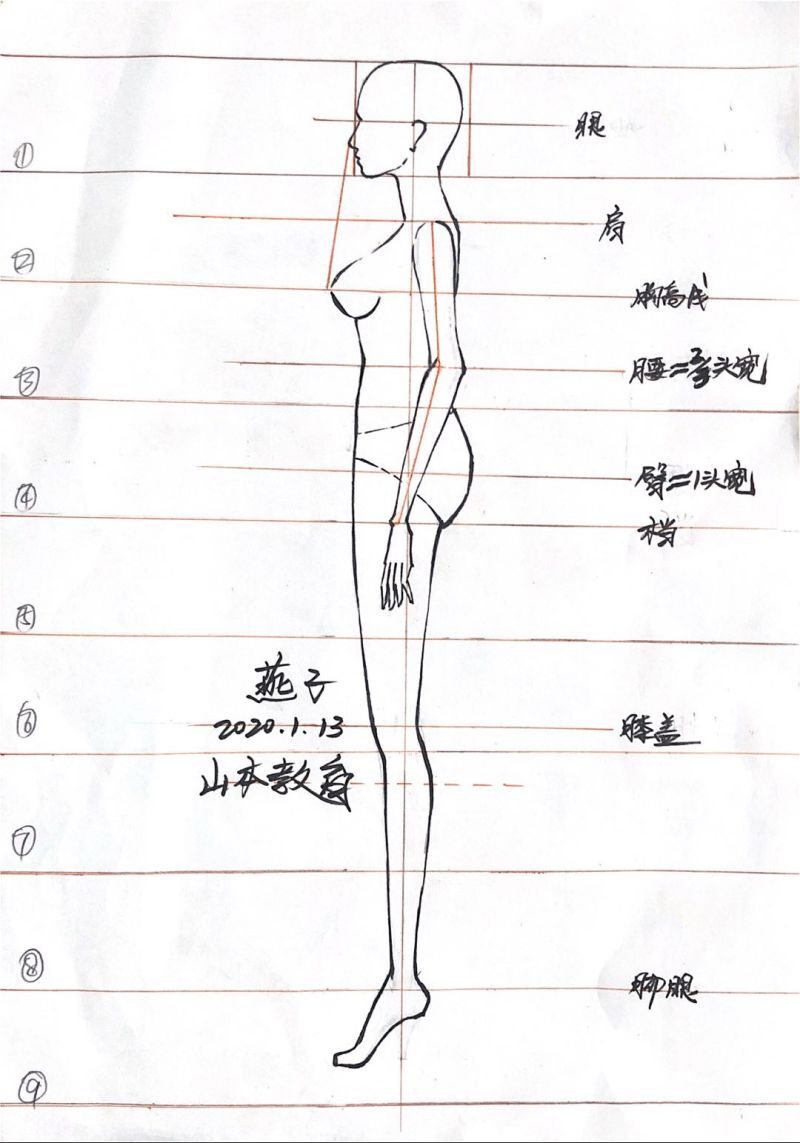 眼
①
肩
②
胸高线
腰=2/3头宽
③
臀=1头宽
④
裆
⑤
燕子
2020.1.13
山本教育
⑥
膝盖
⑦
⑧
脚眼
⑨